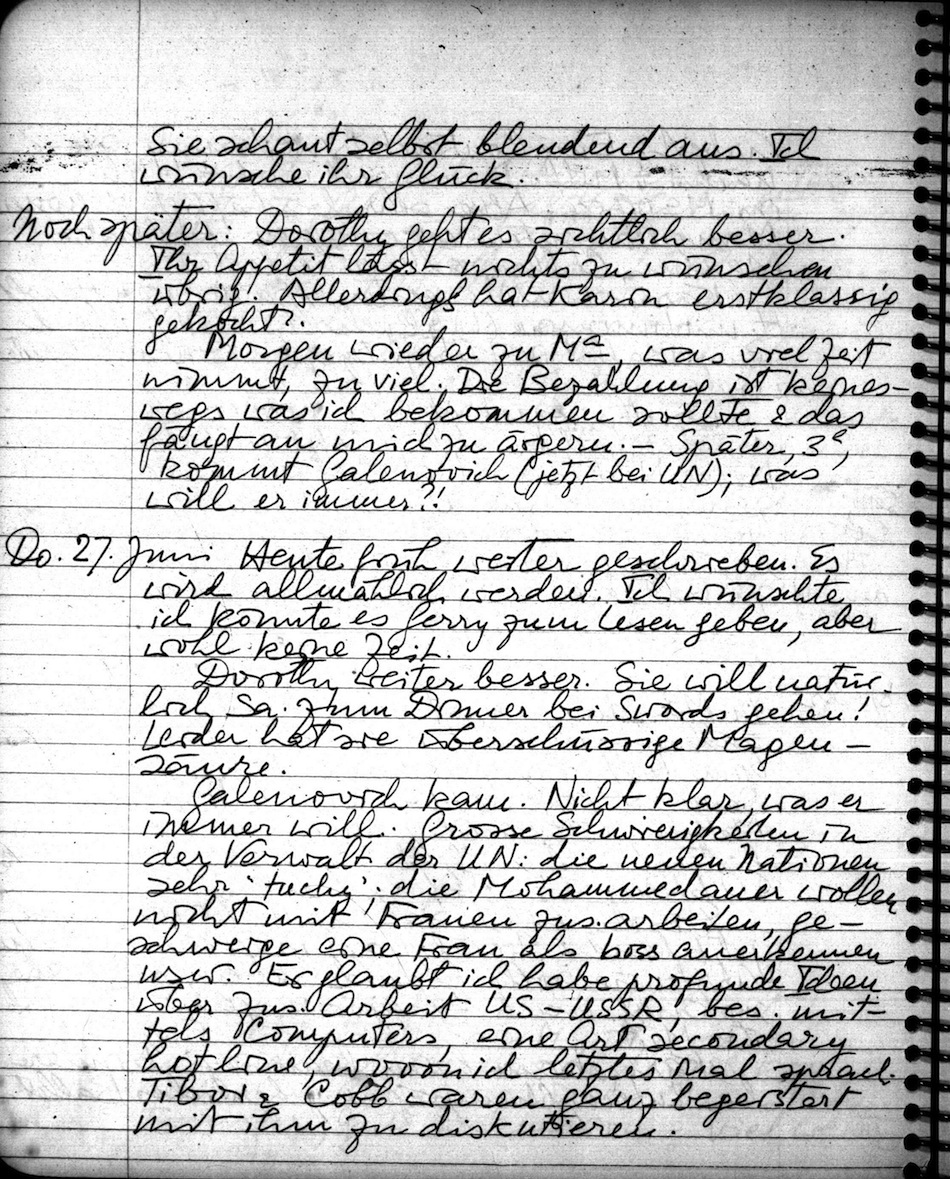 Sie schaut selbst blendend aus. Ich
wünsche ihr Glück.
Noch später: Dorothy geht es sichtlich besser.
Ihr Appetit lässt nichts zu wünschen
übrig. Allerdings hat Karin erstklassig
gekocht.
Morgen wieder zu Mª, was viel Zeit
nimmt, zu viel. Die Bezahlung ist keines-
wegs was ich bekommen sollte & das
fängt an mich zu ärgern. – Später, 3ª,
kommt Galenovich (jetzt bei UN); was
will er immer?!
Do. 27. Juni Heute früh weiter geschrieben. Es
wird allmählich werden. Ich wünschte
ich könnte es Gerry zum Lesen geben, aber
wohl keine Zeit.
Dorothy weiter besser. Sie will natür-
lich Sa. zum Dinner bei Swords gehen!
Leider hat sie überschüssige Magen-
säure.
Galenovich kam. Nicht klar, was er
immer will. Grosse Schwierigkeiten in
der Verwalt der UN: die neuen Nationen
sehr 'tuchy'; die Mohammedaner wollen
nicht mit Frauen zus.arbeiten, ge-
schweige eine Frau als boss anerkennen
usw. Er glaubt ich habe profunde Ideen
über zus. Arbeit US-USSR, bes. mit-
tels Computers, eine Art secondary
hotline, wovon ich letztes Mal sprach.
Tibor & Cobb waren ganz begeistert
mit ihm zu diskutieren.